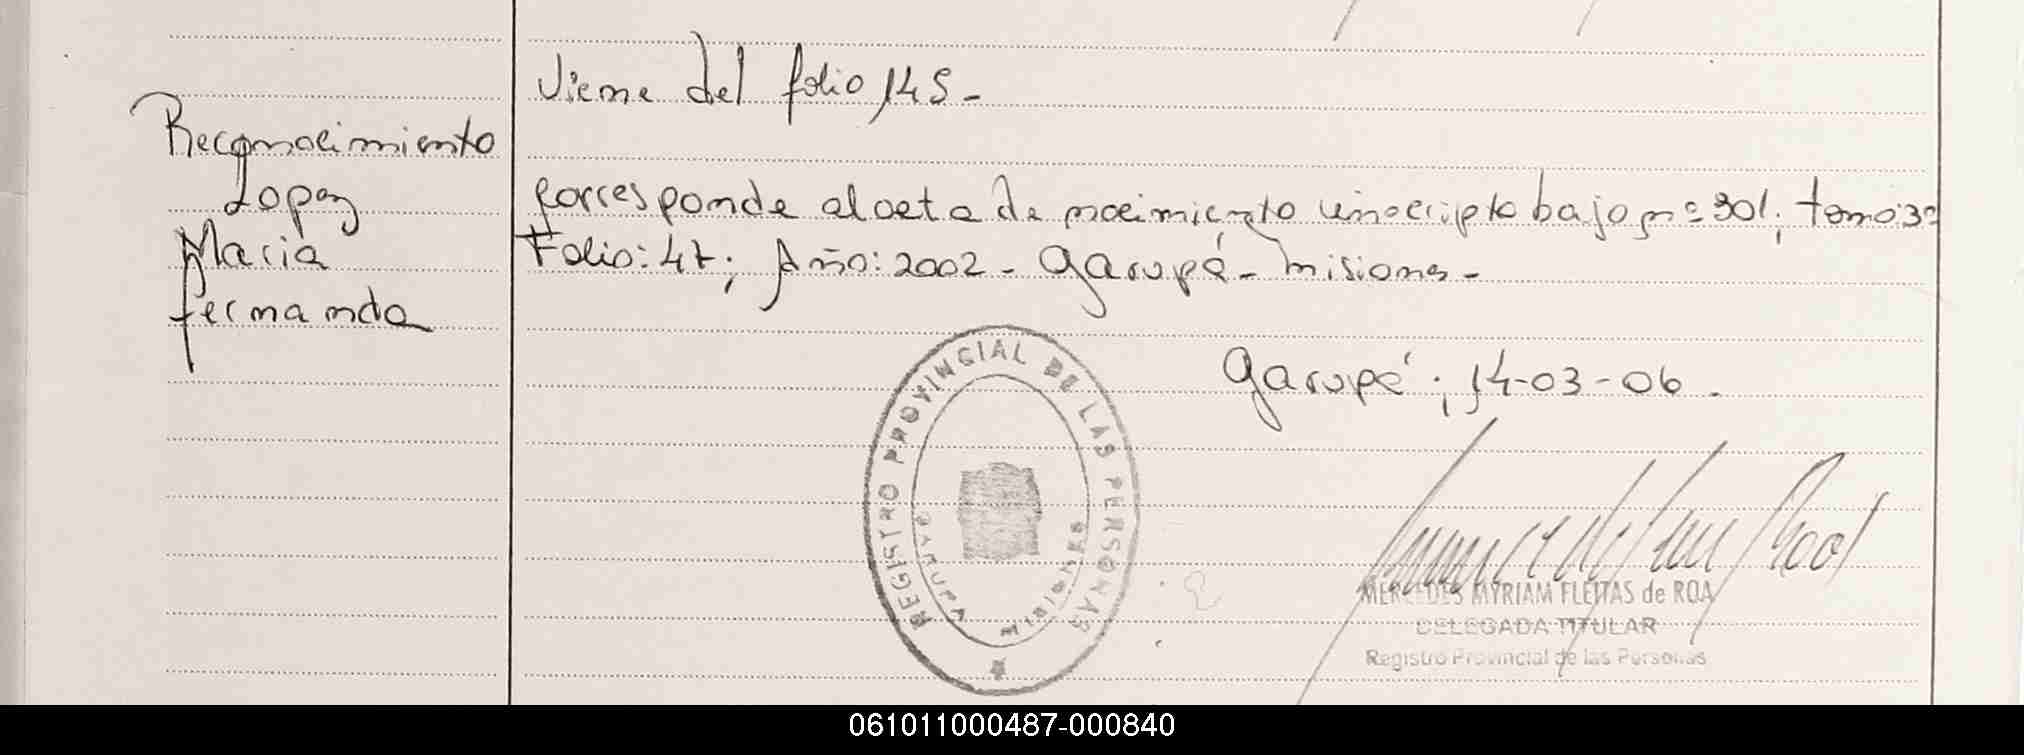 Viene del folio 145-
Reconocimiento
Lopez
Maria
fernanda
Corresponde al acta de nacimiento inscripto bajo nº 301; tomo: 3º
Folio: 47; Año: 2002 - Garupá - Misiones -
Garupá; 14-03-06.
REGISTRO PROVINCIAL DE LAS PERSONAS
MISIONES
MERCEDES MYRIAM FLEITAS de ROA
DELEGADA TITULAR
Registro Provincial de las Personas
061011000487-000840